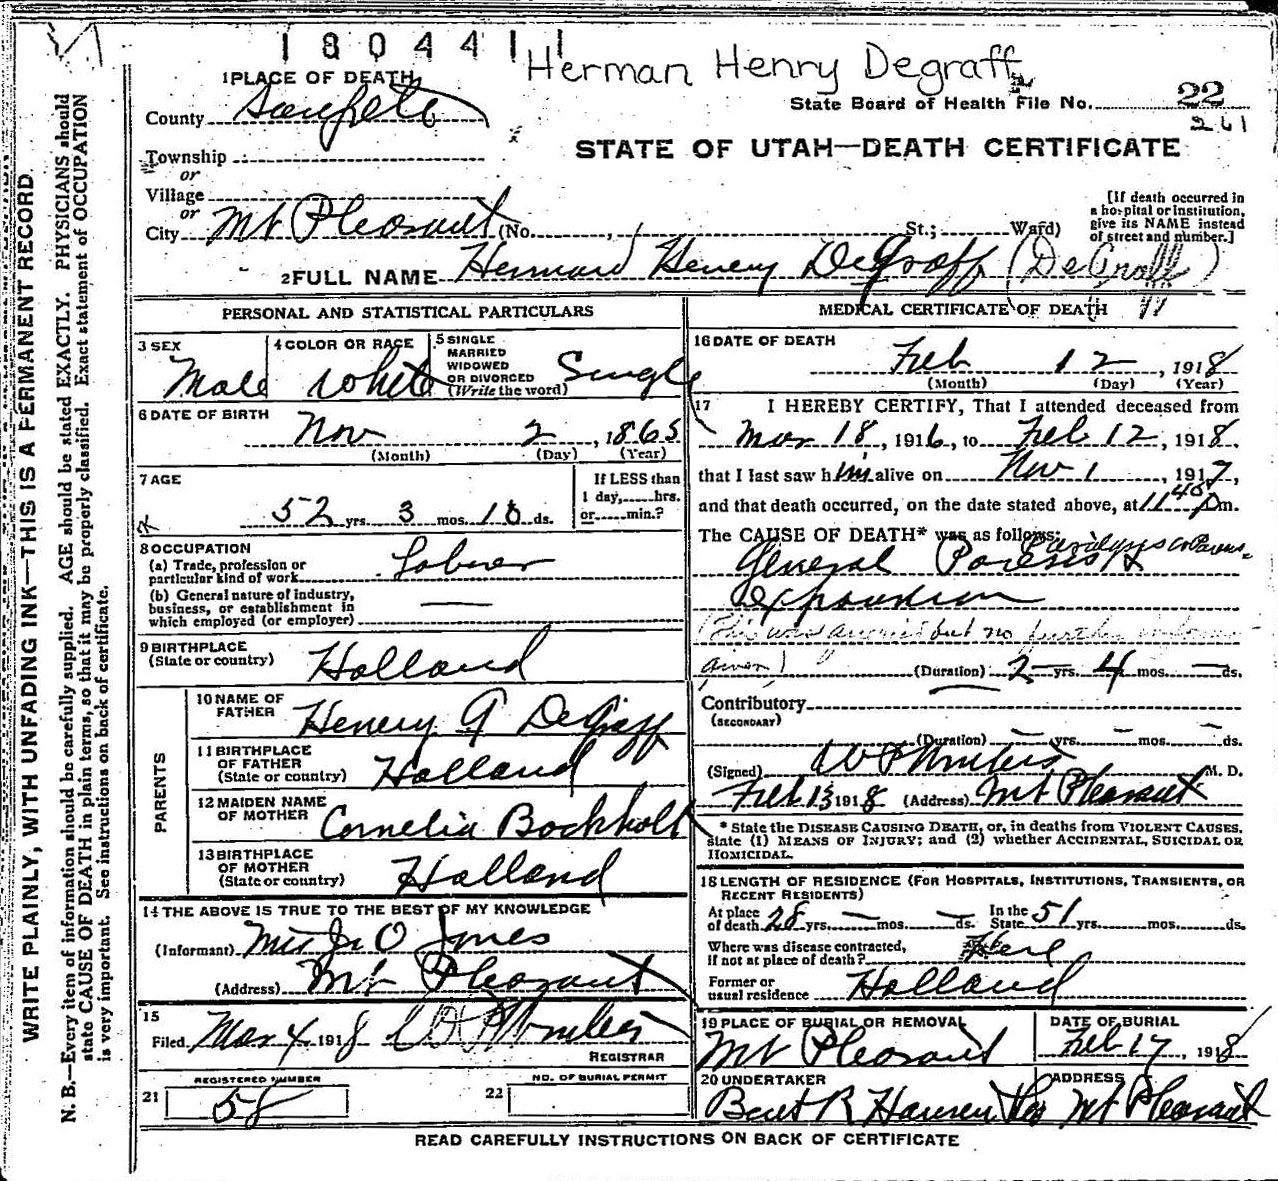 1804411
Herman Henry Degraff
1 PLACE OF DEATH
State Board of Health File No. 22
261
County Sanpete
STATE OF UTAH—DEATH CERTIFICATE
Township
or
Village
or
City Mt Pleasant (No. , St.; Ward)
[If death occurred in
a hospital or institution,
give its NAME instead
of street and number.]
2 FULL NAME Hermard Henery DeGraff (DeGraff)
PERSONAL AND STATISTICAL PARTICULARS
3 SEX
Male
4 COLOR OR RACE
White
5 SINGLE
MARRIED
WIDOWED
OR DIVORCED
(Write the word)
Single
6 DATE OF BIRTH
Nov 2, 1865
(Month) (Day) (Year)
7 AGE
52 yrs. 3 mos. 10 ds.
If LESS than
1 day, hrs.
or min.?
8 OCCUPATION
(a) Trade, profession or
particular kind of work Laborer
(b) General nature of industry,
business, or establishment in
which employed (or employer)
9 BIRTHPLACE
(State or country) Holland
PARENTS
10 NAME OF
FATHER Henery G DeGraff
11 BIRTHPLACE
OF FATHER
(State or country) Holland
12 MAIDEN NAME
OF MOTHER Cornelia Bockholt
13 BIRTHPLACE
OF MOTHER
(State or country) Holland
14 THE ABOVE IS TRUE TO THE BEST OF MY KNOWLEDGE
(Informant) O Jones
(Address) Mt Pleasant
15
Filed Mar 4 1918
REGISTRAR
REGISTERED NUMBER
21 58
NO. OF BURIAL PERMIT
22
MEDICAL CERTIFICATE OF DEATH
16 DATE OF DEATH
Feb 12, 1918
(Month) (Day) (Year)
17 I HEREBY CERTIFY, That I attended deceased from
Mar 18, 1916, to Feb 12, 1918,
that I last saw him alive on Nov 1, 1917,
and that death occurred, on the date stated above, at 11 40 Pm.
The CAUSE OF DEATH* was as follows:
General Paresis Paralysis or
(This was queried but no further
given) (Duration) 2 yrs. 4 mos. — ds.
Contributory
(SECONDARY)
(Duration) — yrs. — mos. — ds.
(Signed) M. D.
Feb 13 1918 (Address) Mt Pleasant
* State the DISEASE CAUSING DEATH, or, in deaths from VIOLENT CAUSES,
state (1) MEANS OF INJURY; and (2) whether ACCIDENTAL, SUICIDAL OR
HOMICIDAL.
18 LENGTH OF RESIDENCE (FOR HOSPITALS, INSTITUTIONS, TRANSIENTS, OR
RECENT RESIDENTS)
At place
of death 28 yrs. — mos. — ds. In the
State 51 yrs. mos. ds.
Where was disease contracted,
if not at place of death? Here
Former or
usual residence Holland
19 PLACE OF BURIAL OR REMOVAL
Mt Pleasant
DATE OF BURIAL
Feb 17, 1918
20 UNDERTAKER
Bent R Hansen
ADDRESS
Mt Pleasant
READ CAREFULLY INSTRUCTIONS ON BACK OF CERTIFICATE
WRITE PLAINLY, WITH UNFADING INK—THIS IS A PERMANENT RECORD
N. B.—Every item of information should be carefully supplied. AGE should be stated EXACTLY. PHYSICIANS should
state CAUSE OF DEATH in plain terms, so that it may be properly classified. Exact statement of OCCUPATION
is very important. See instructions on back of certificate.